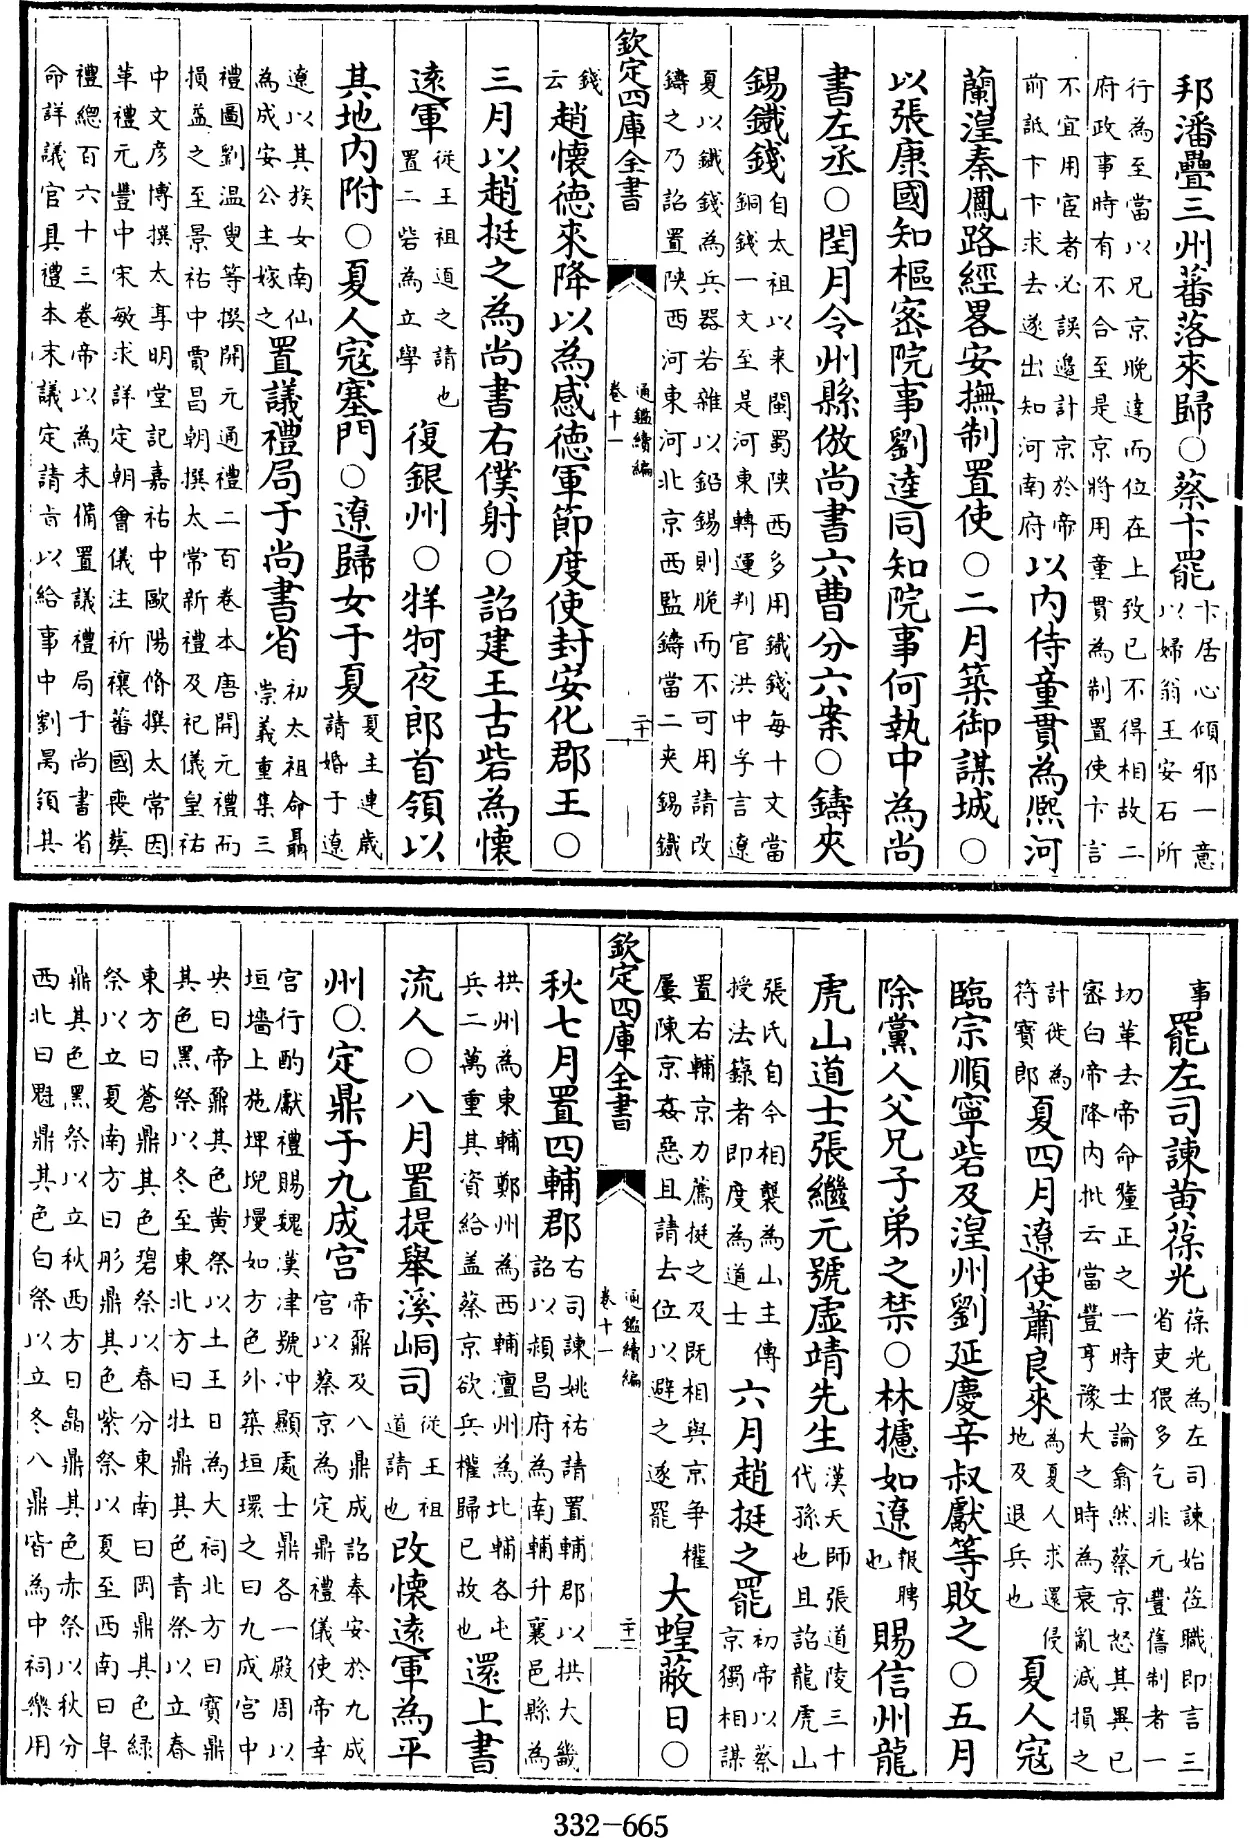 邦潘疊三州蕃落來歸〇蔡卞罷
卞居心傾邪一意
以婦翁王安石所
行為至當以兄京晚達而位在上致已不得相故二
府政事時有不合至是京將用童貫為制置使卞言
不宜用宦者必誤邊計京於帝
前詆卞卞求去遂出知河南府
以内侍童貫為熙河
蘭湟秦鳳路經畧安撫制置使〇二月築御謀城〇
以張康國知樞密院事劉逵同知院事何執中為尚
書左丞〇閏月令州縣倣尚書六曹分六案〇鑄夾
錫鐵錢
自太祖以来閩蜀陕西多用鐵錢每十文當
銅錢一文至是河東轉運判官洪中孚言遼
夏以鐵錢為兵器若雜以鉛錫則脆而不可用請改
鑄之乃詔置陕西河東河北京西監鑄當二夹錫鐵
欽定四庫全書
通鑑續編
卷十一
二十
錢
云
趙懷德來降以為感德軍節度使封安化郡王〇
三月以趙挺之為尚書右僕射〇詔建王古砦為懷
遠軍
從王祖道之請也
置二砦為立學
復銀州〇牂牁夜郎首領以
其地内附〇夏人寇塞門〇遼歸女于夏
夏主連歳
請婚于遼
遼以其族女南仙
為成安公主嫁之
置議禮局于尚書省
初太祖命聶
崇義重集三
禮圖劉温叟等撰開元通禮二百卷本唐開元禮而
損益之至景祐中賈昌朝撰太常新禮及祀儀皇祐
中文彦博撰太享明堂記嘉祐中歐陽脩撰太常因
革禮元豐中宋敏求詳定朝會儀注祈禳蕃國喪葬
禮總百六十三卷帝以為未備置議禮局于尚書省
命詳議官具禮本末議定請㫖以給事中劉昺領其
事
罷左司諫黄葆光
葆光為左司諫始莅職即言三
省吏猥多乞非元豐舊制者一
切革去帝命釐正之一時士論翕然蔡京怒其異已
宻白帝降内批云當豐亨豫大之時為衰亂減損之
計徙為
符寶郎
夏四月遼使蕭良来
為夏人求還侵
地及退兵也
夏人寇
臨宗順寧砦及湟州劉延慶辛叔獻等敗之〇五月
除黨人父兄子弟之禁〇林攄如遼
報聘
也
賜信州龍
虎山道士張繼元號虛靖先生
漢天師張道陵三十
代孫也且詔龍虎山
張氏自今相襲為山主傳
授法籙者即度為道士
六月趙挺之罷
初帝以蔡
京獨相謀
置右輔京力薦挺之及既相與京争權
屢陳京姦惡且請去位以避之遂罷
大蝗蔽日〇
欽定四庫全書
通鑑續編
卷十一
二十一
秋七月置四輔郡
右司諫姚祐請置輔郡以拱大畿
詔以潁昌府為南輔升襄邑縣為
拱州為東輔鄭州為西輔澶州為北輔各屯
兵二萬重其資給盖蔡京欲兵權歸已故也
還上書
流人〇八月置提舉溪峒司
從王祖
道請也
改懷遠軍為平
州〇定鼎于九成宫
帝鼐及八鼎成詔奉安於九成
宫以蔡京為定鼎禮儀使帝幸
宫行酌獻禮賜魏漢津號冲顯處士鼎各一殿周以
垣墻上施埤堄墁如方色外築垣環之曰九成宫中
央曰帝鼐其色黄祭以土王日為大祠北方曰寶鼎
其色黑祭以冬至東北方曰牡鼎其色青祭以立春
東方曰蒼鼎其色碧祭以春分東南曰岡鼎其色緑
祭以立夏南方曰彤鼎其色紫祭以夏至西南曰阜
鼎其色黑祭以立秋西方曰晶鼎其色赤祭以秋分
西北曰魁鼎其色白祭以立冬八鼎皆為中祠樂用
332-665